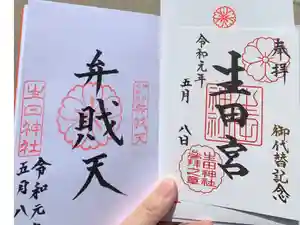 奉拝
御代替記念
生田宮
生田神社
参拝之章
令和元年
五月
八日
弁財天
生田神社
令和元年
五月八